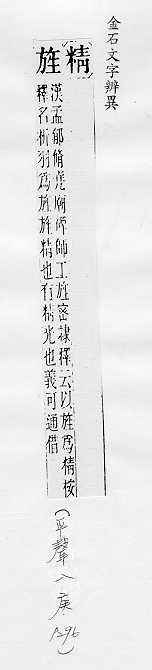 金石文字辨異
精
旌
漢孟郁脩堯廟碑師工旌密隸釋云以旌為精按
釋名析羽為旌旌精也有精光也義可通借
(平聲八庚 1296)